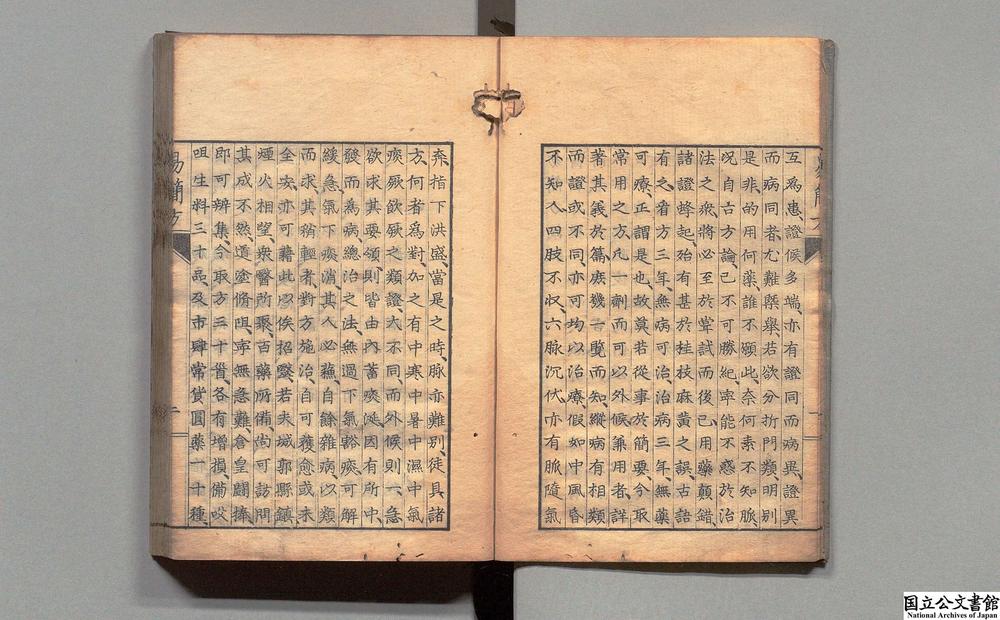 互爲患證候多端亦有證同而病異證異
而病同者尤難槩舉若欲分折門類明別
是非的用何藥誰不願此奈何素不知脈
况自古方論已不可勝紀寧能不惑於治
法之衆將必至於嘗試而後已用藥顛錯
諸證蜂起殆有甚於桂枝麻黃之誤古語
有之看方三年無病可治治病三年無藥
可療正謂是也故莫若從事於簡要今取
常用之方凡一劑而可以外候兼用者詳
著其義於篇庶幾一覽而知縱病有相類
而證或不同亦可均以治療假如中風昏
不知人四肢不収六脈沉伏亦有脈隨氣
奔指下洪盛當是之時脈亦難別徒具諸
方何者爲對加之有中寒中暑中濕中氣
痰厥飲厥之類證大不同而外候則一急
欲求其要領則皆由內蓄痰涎因有所中
發而爲病緫治之法無過下氣豁痰可解
緩急氣下痰消其人必蘇自餘雜病以類
而求其稍輕者對方施治自可獲愈或未
全安亦可藉此以俟招醫若夫城郭縣鎮
煙火相望衆醫所聚百藥所備尚可訪問
其成不然道塗脩阻寧無急難倉皇鬪揍
即可辨集今取方三十首各有增損備㕮
咀生料三十品及市肆常貨圓藥一十種
易簡方
二
国立公文書館
National Archives of Japan